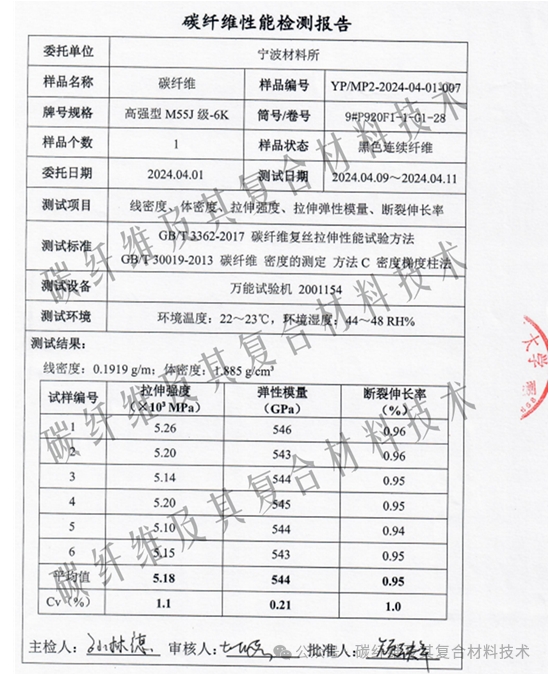 碳纤维性能检测报告
委托单位 宁波材料所
样品名称 碳纤维 样品编号 YP/MP2-2024-04-01-007
牌号规格 高强型 M55J 级-6K 筒号/卷号 9#P920F1-1-G1-28
样品个数 1 样品状态 黑色连续纤维
委托日期 2024.04.01 测试日期 2024.04.09～2024.04.11
测试项目 线密度、体密度、拉伸强度、拉伸弹性模量、断裂伸长率
测试标准 GB/T 3362-2017 碳纤维复丝拉伸性能试验方法
GB/T 30019-2013 碳纤维 密度的测定 方法 C 密度梯度柱法
测试设备 万能试验机 2001154
测试环境 环境温度：22～23℃，环境湿度：44～48 RH%
测试结果：
线密度：0.1919 g/m；体密度：1.885 g/cm³
试样编号 拉伸强度 弹性模量 断裂伸长率
（×10³ MPa） （GPa） （%）
1 5.26 546 0.96
2 5.20 543 0.96
3 5.14 544 0.95
4 5.20 545 0.95
5 5.10 544 0.94
6 5.15 543 0.95
平均值 5.18 544 0.95
Cv（%） 1.1 0.21 1.0
主检人： 孙林德 审核人： 批准人：
碳纤维及其复合材料技术
碳纤维及其复合材料技术
碳纤维及其复合材料技术
大学